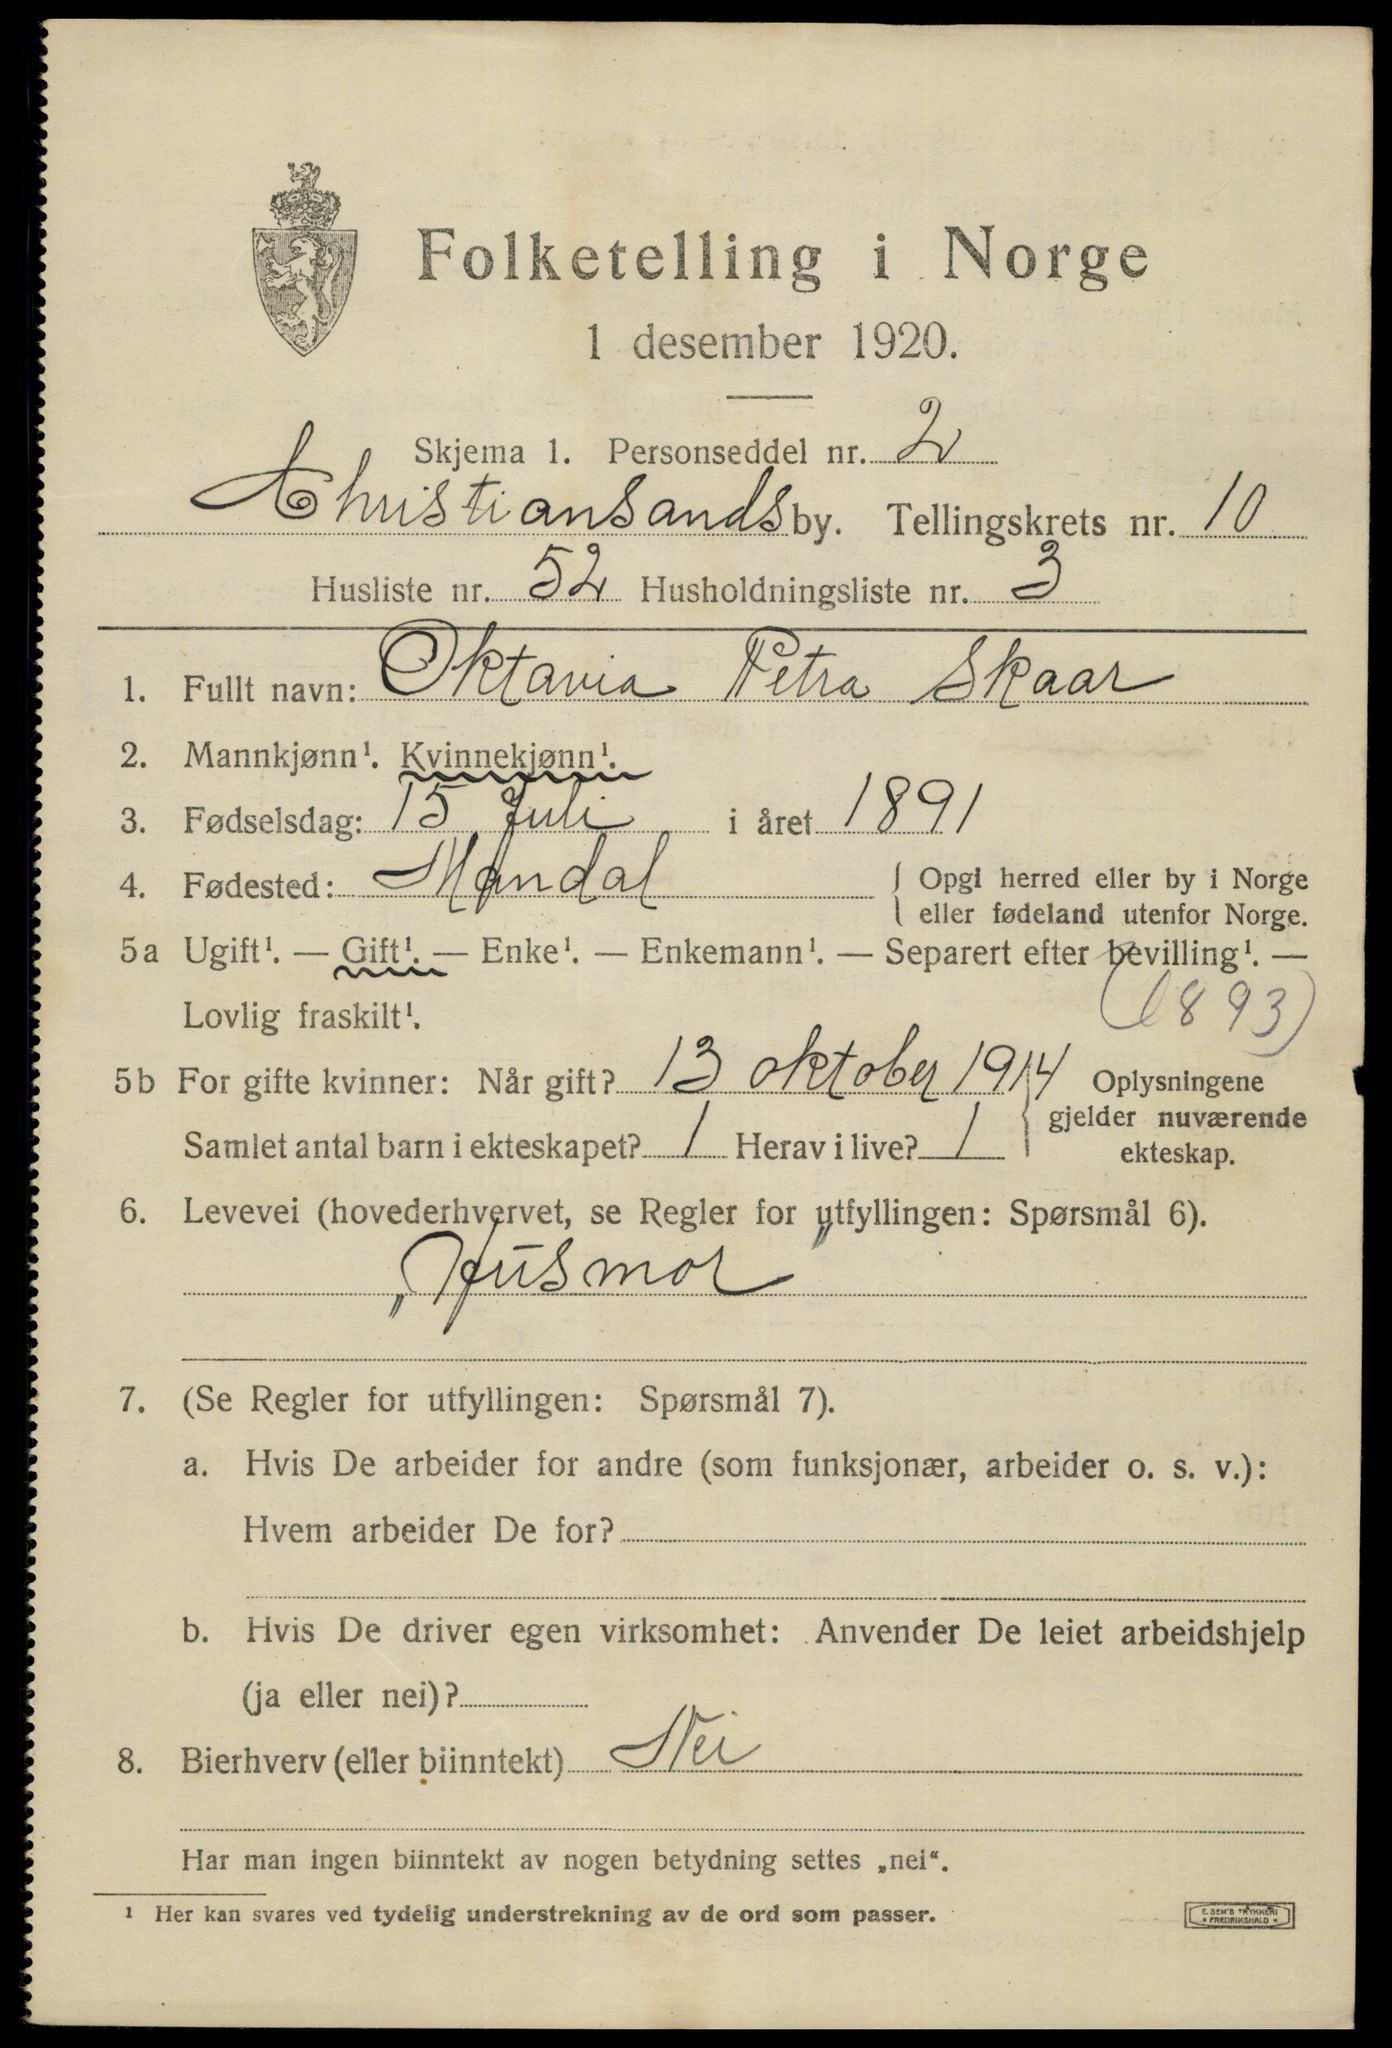 Folketelling i Norge
1 desember 1920.
Skjema 1. Personseddel nr. 2
Christiansands by. Tellingskrets nr. 10
Husliste nr. 52 Husholdningsliste nr. 3
1. Fullt navn: Oktavia Petra Skaar
2. Mannkjønn¹. Kvinnekjønn¹.
3. Fødselsdag: 15 Juli i året 1891
4. Fødested: Mandal { Opgi herred eller by i Norge
{ eller fødeland utenfor Norge.
5a Ugift¹. — Gift¹. — Enke¹. — Enkemann¹. — Separert efter bevilling¹. —
Lovlig fraskilt¹. (1893)
5b For gifte kvinner: Når gift? 13 oktober 1914 Oplysningene
gjelder nuværende
Samlet antal barn i ekteskapet? 1 Herav i live? 1 ekteskap.
6. Levevei (hovederhvervet, se Regler for utfyllingen: Spørsmål 6).
„Husmor"
7. (Se Regler for utfyllingen: Spørsmål 7).
a. Hvis De arbeider for andre (som funksjonær, arbeider o. s. v.):
Hvem arbeider De for?
b. Hvis De driver egen virksomhet: Anvender De leiet arbeidshjelp
(ja eller nei)?
8. Bierhverv (eller biinntekt) Nei
Har man ingen biinntekt av nogen betydning settes „nei“.
¹ Her kan svares ved tydelig understrekning av de ord som passer.
E. SEM'S TRYKKERI
• FREDRIKSHALD •